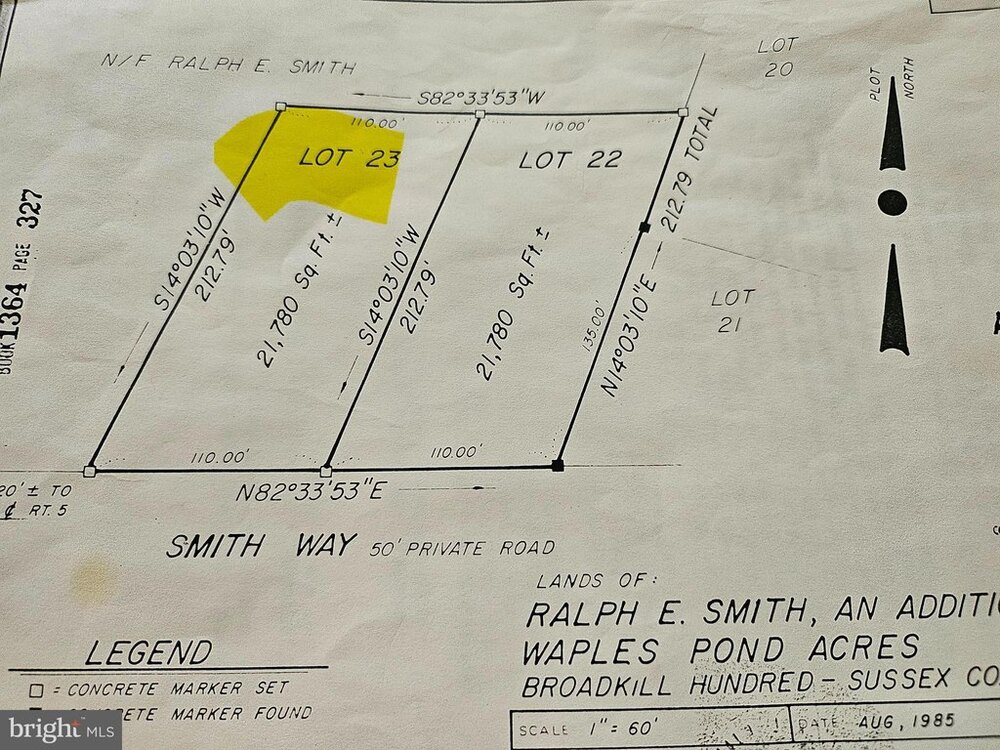 N/F RALPH E. SMITH
LOT
20
PLOT NORTH
S82°33'53"W
110.00'
110.00'
LOT 23
LOT 22
212.79 TOTAL
BOOK 1364 PAGE 327
S14°03'10"W
212.79'
21,780 Sq. Ft. ±
S14°03'10"W
212.79'
21,780 Sq. Ft. ±
135.00'
N14°03'10"E
LOT
21
110.00'
110.00'
20' ± TO
℄ RT. 5
N82°33'53"E
SMITH WAY 50' PRIVATE ROAD
LANDS OF:
RALPH E. SMITH, AN ADDITI
WAPLES POND ACRES
BROADKILL HUNDRED - SUSSEX CO
LEGEND
□ = CONCRETE MARKER SET
CONCRETE MARKER FOUND
SCALE 1" = 60'
DATE AUG, 1985
bright MLS